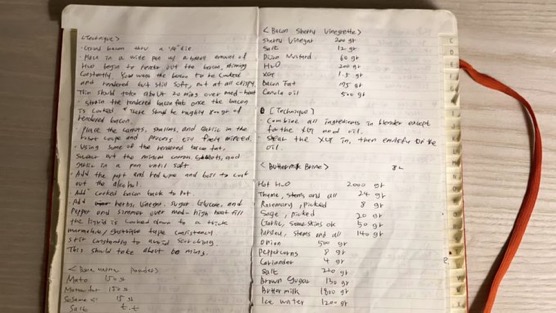 [Technique]
Grind bacon thru a die
Place in a wide pot w/ a small amount of
H2O begin to render out the bacon, stirring
constantly. You want the bacon to be cooked
and rendered but still soft, not at all crispy.
This should take about 20 mins over med-heat
Strain the rendered bacon fat once the bacon
is cooked. There should be roughly
rendered bacon.
Place the carrots, onions, and garlic in the
robot coupe and process til finely minced.
Using some of the rendered bacon fat,
sweat out the minced carrots, and
garlic in a pan until soft
Add the port and red wine and boil to cook
out the alcohol
Add cooked bacon back to pot.
Add herbs, vinegar, sugar, and
pepper and simmer over med high heat till
the liquid is cooked down to a thick
marmalade consistency
Stir constantly to avoid scorching
This should take about mins.
150 g
150 g
15 g
Salt t.t
< Bacon Sherry Vinegrette >
Sherry Vinegar 200 gr
Salt 12 gr
Dijon Mustard 60 gr
H2O 200 gr
XGT 1.5 gr
Bacon Fat 195 gr
Canola oil 500 gr
[Technique]
Combine all ingredients in blender except
for the XGT and oil.
the XGT in, then emulsify the
oil.
< Buttermilk Brine > 8 L
Hot H2O 2000 gr
Thyme, stems and all 24 gr
Rosemary, picked 8 gr
Sage, picked 20 gr
Garlic, 50 gr
Parsley, stems and all 140 gr
Onion 500 gr
Peppercorns 8 gr
Coriander 4 gr
Salt 220 gr
Brown Sugar 130 gr
Buttermilk 1800 gr
Ice water 1200 gr